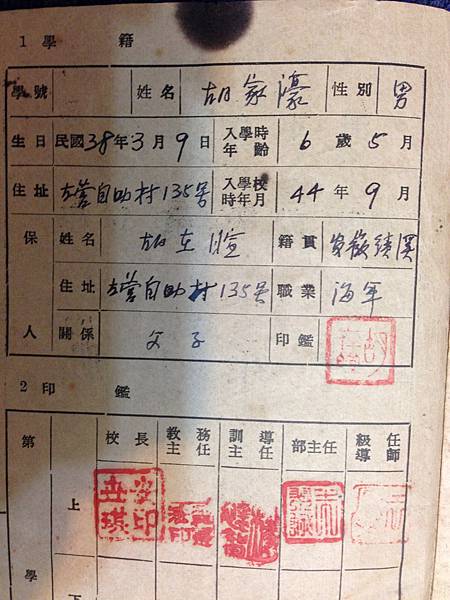 1 學籍
學號 姓名 胡家濠 性別 男
生日 民國38年3月9日 入學時年齡 6歲5月
住址 左營自助村135号 入學校時年月 44年9月
保 姓名 胡 籍貫 安徽績溪
住址 左營自助村135号 職業 海軍
人 關係 父子 印鑑
2 印鑑
第 校長 教務主任 訓導主任 部主任 級任導師
上
學 下